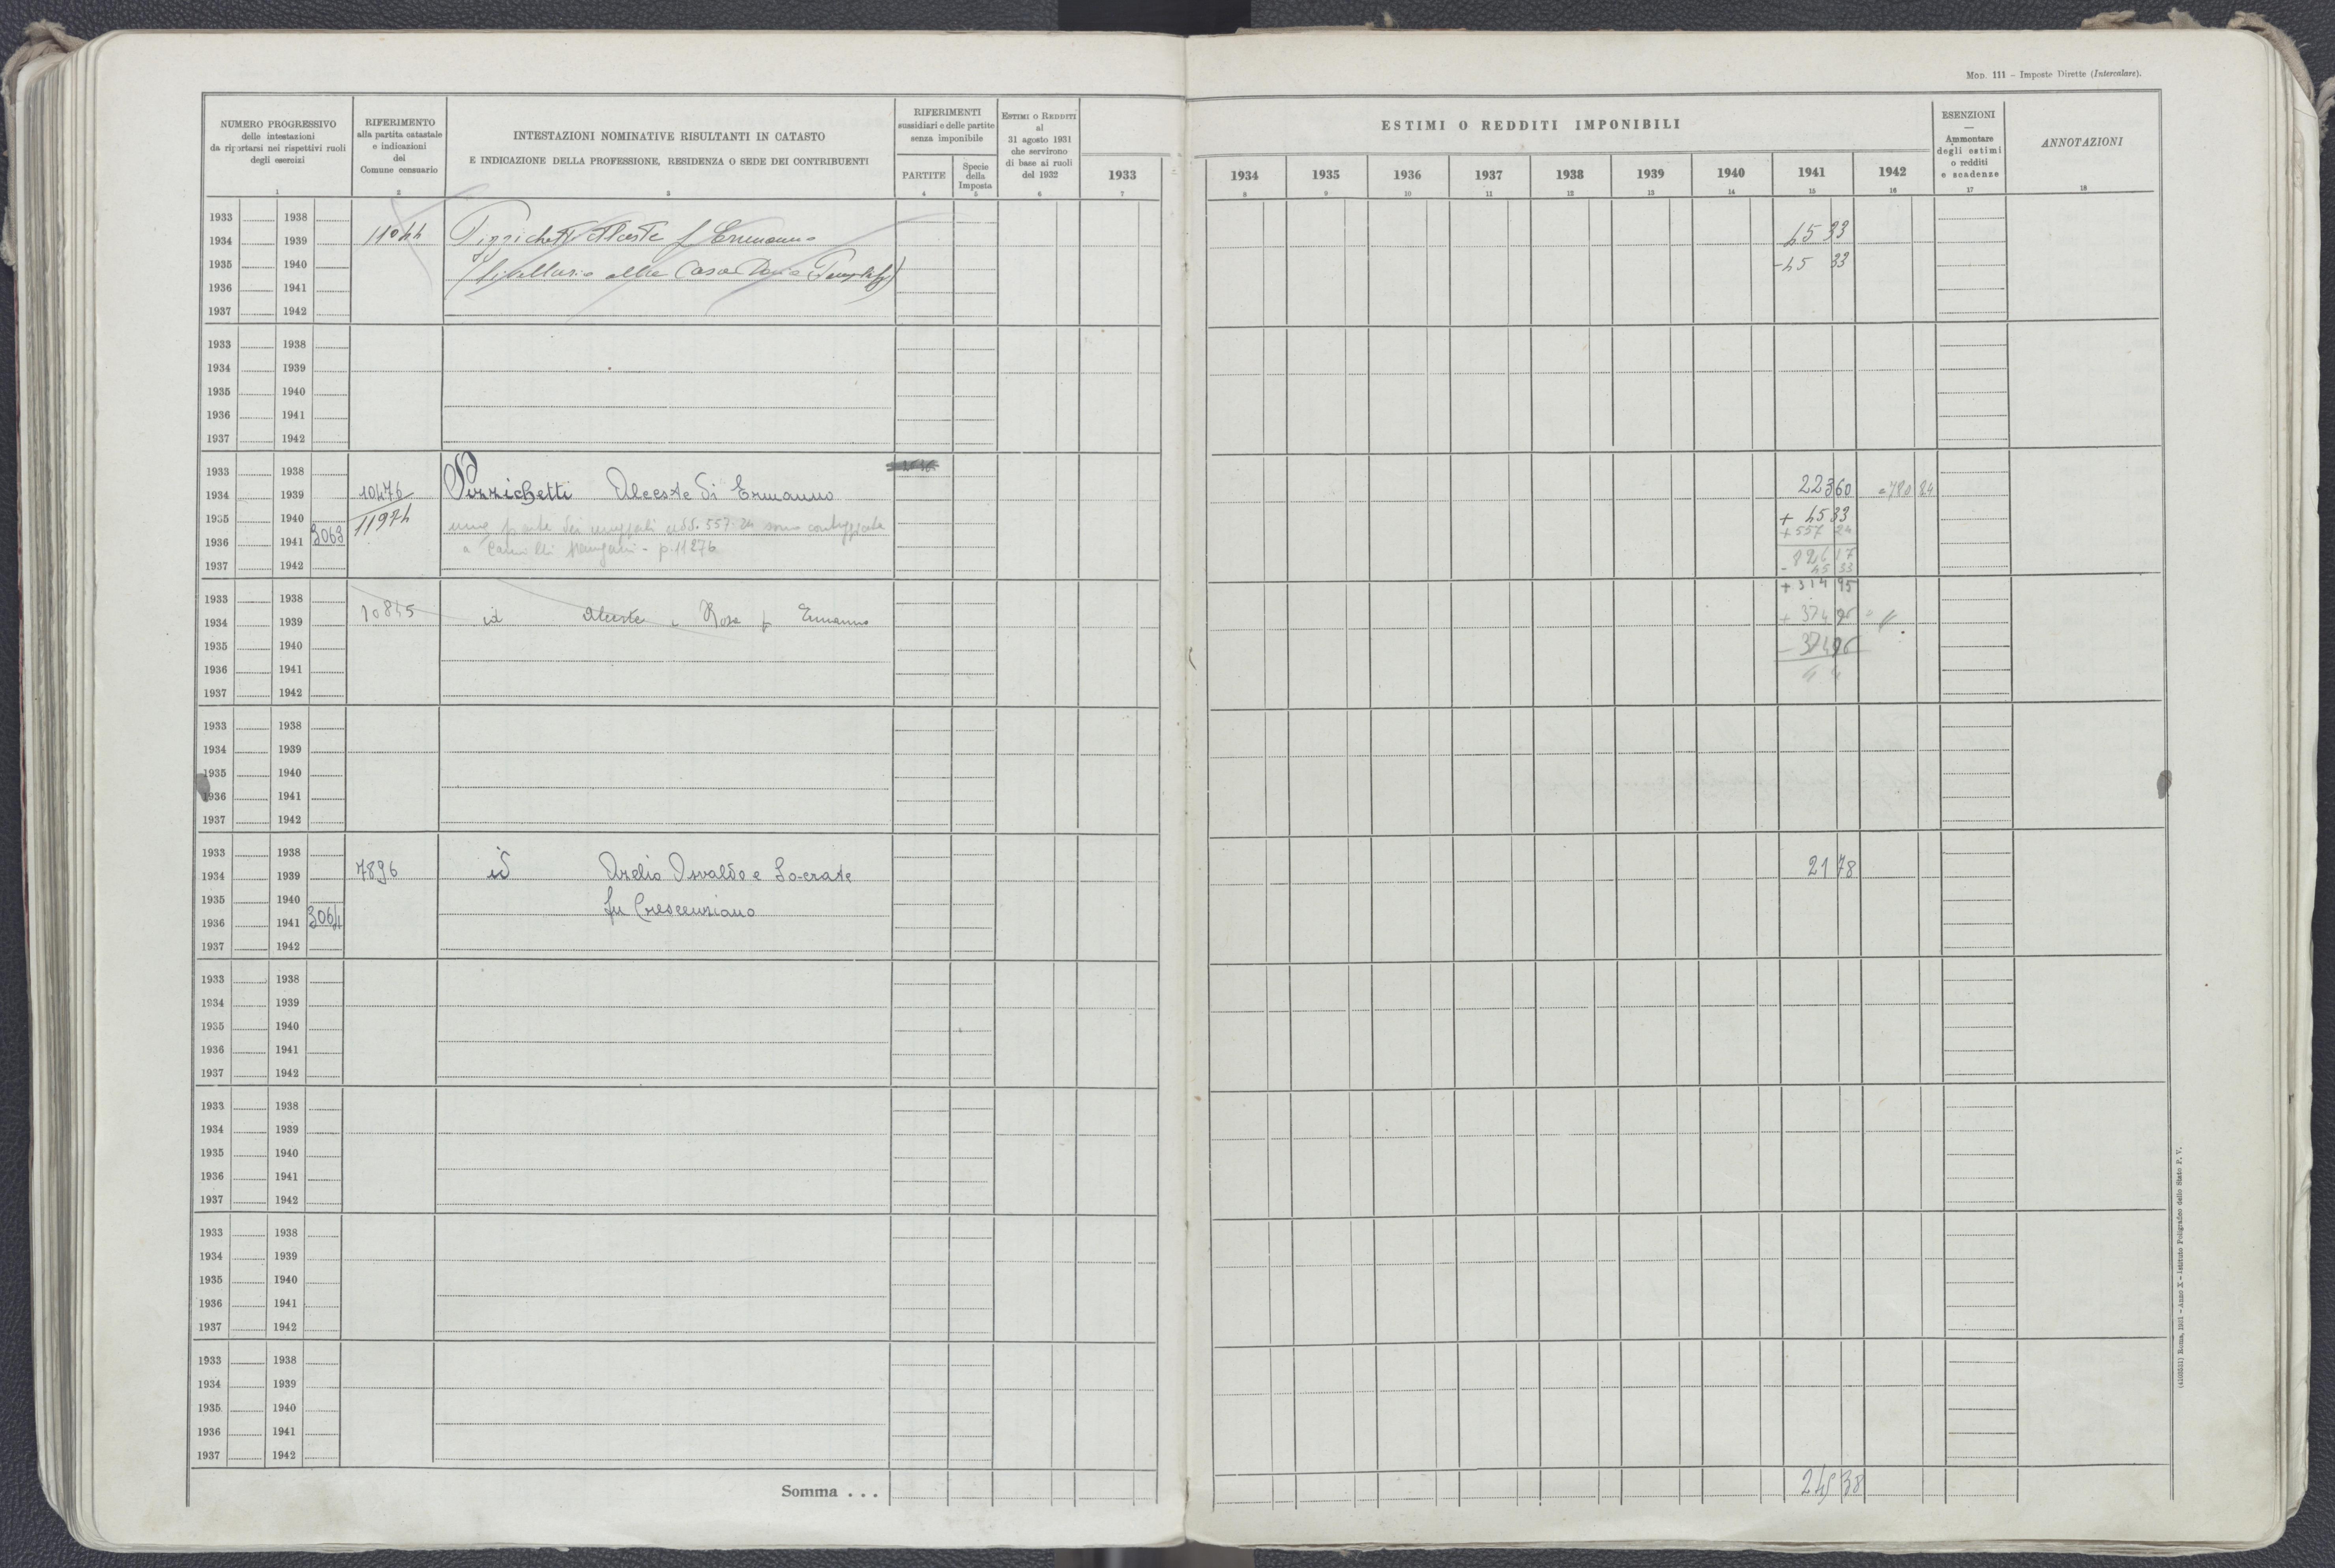 Mod. 111 – Imposte Dirette (Intercalare).
NUMERO PROGRESSIVO
delle intestazioni
da riportarsi nei rispettivi ruoli
degli esercizi
1
RIFERIMENTO
alla partita catastale
e indicazioni
del
Comune censuario
2
INTESTAZIONI NOMINATIVE RISULTANTI IN CATASTO
E INDICAZIONE DELLA PROFESSIONE, RESIDENZA O SEDE DEI CONTRIBUENTI
3
RIFERIMENTI
sussidiari e delle partite
senza imponibile
PARTITE
4
Specie
della
Imposta
5
Estimi o Redditi
al
31 agosto 1931
che servirono
di base ai ruoli
del 1932
6
ESTIMI O REDDITI IMPONIBILI
1933 1934 1935 1936 1937 1938 1939 1940 1941 1942
7 8 9 10 11 12 13 14 15 16
ESENZIONI
—
Ammontare
degli estimi
o redditi
e scadenze
17
ANNOTAZIONI
18
1933 1938
1934 1939 11044 Pizzichetti Alceste f Ermanno 45 33
1935 1940 (livellario alla Casa -45 33
1936 1941
1937 1942
1933 1938
1934 1939
1935 1940
1936 1941
1937 1942
1933 1938
1934 1939 10476 Pizzichetti Alceste di Ermanno 223 60 =780 24
1935 1940 11974 + 45 33
una parte dei 557.24 sono +557 24
1936 1941 3063 a p. 11276 826 17
1937 1942 - 45 33
1933 1938 + 314 95
1934 1939 10845 id Alceste e Rosa f Ermanno
1935 1940
1936 1941
1937 1942
1933 1938
1934 1939
1935 1940
1936 1941
1937 1942
1933 1938
1934 1939 7896 id Arelio Osvaldo e Socrate 21 78
1935 1940 fu Crescenziano
1936 1941 3064
1937 1942
1933 1938
1934 1939
1935 1940
1936 1941
1937 1942
1933 1938
1934 1939
1935 1940
1936 1941
1937 1942
1933 1938
1934 1939
1935 1940
1936 1941
1937 1942
1933 1938
1934 1939
1935 1940
1936 1941
1937 1942
Somma . . . 245 38
(4103531) Roma, 1931 – Anno X – Istituto Poligrafico dello Stato P. V.